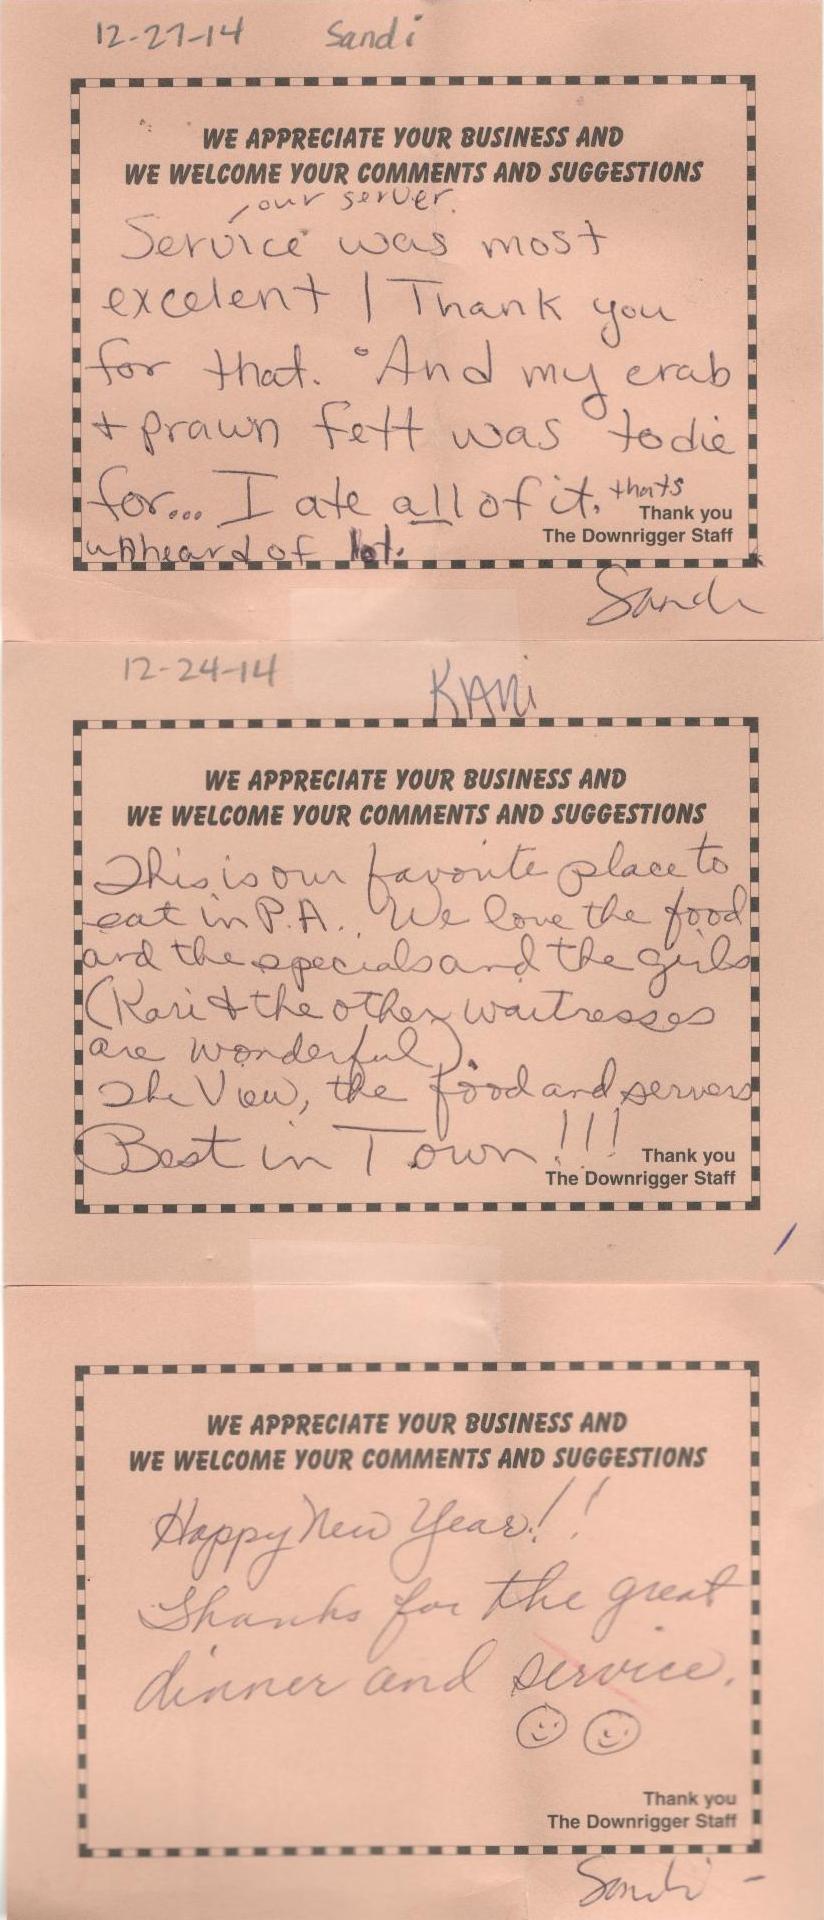 12-27-14 Sandi
WE APPRECIATE YOUR BUSINESS AND
WE WELCOME YOUR COMMENTS AND SUGGESTIONS
, our server.
Service was most
excelent! Thank you
for that. And my crab
+ prawn fett was to die
for... I ate all of it. thats
Thank you
The Downrigger Staff
unheard of lol.
Sandi
12-24-14 KARi
WE APPRECIATE YOUR BUSINESS AND
WE WELCOME YOUR COMMENTS AND SUGGESTIONS
This is our favorite place to
eat in P.A.. We love the food
and the specials and the girls
(Kari & the other waitresses
are wonderful).
The View, the food and servers
Best in Town!!!
Thank you
The Downrigger Staff
WE APPRECIATE YOUR BUSINESS AND
WE WELCOME YOUR COMMENTS AND SUGGESTIONS
Happy New Year!!
Thanks for the great
dinner and service.
Thank you
The Downrigger Staff
Sandi -